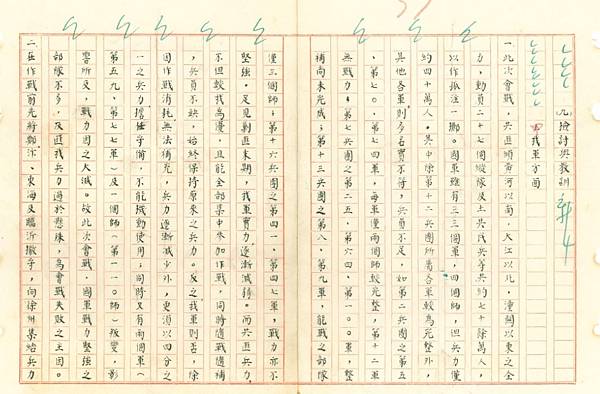 (九)檢討與教訓
我軍方面
一此次會戰,共匪傾黃河以南,大江以北,潼關以東之全
力,動員二十七個縱隊及土共民兵等共約七十餘萬人,
以作孤注一擲。國軍雖有三三個軍,四個師,但兵力僅
約四十萬人。其中除第十二兵團所屬各軍較為完整外,
其他各軍則多名實不符,兵員不足,如第二兵團之第五
、第七○、第七四軍,每軍僅兩個師較完整,第十二軍
無戰力;第七兵團之第二五、第六四、第一○○軍,整
補尚未完成;第十三兵團之第八、第九軍,能戰之部隊
僅三個師;第十六兵團之第四一、第四七軍,戰力亦不
堅強。足見剿匪末期,我軍實力逐漸減損。而共匪兵力,
不但較我為優,且能全部集中參加作戰,同時隨戰隨補
,兵員不缺,始終保持原來之兵力。反之我軍則否,除
因作戰消耗無法補充,兵力逐漸減少外,更須以四分之
一之兵力擔任守備,不能機動使用;同時又有兩個軍(
第五九、第七七軍)及一個師(第一一○師)叛變,影
響所及,戰力因之大減。故此次會戰,國軍戰力堅強之
部隊不多,及匪我兵力過於懸殊,為會戰失敗之主因。
二在作戰前先將鄭汴、東海及臨沂撤守,向徐州集結兵力